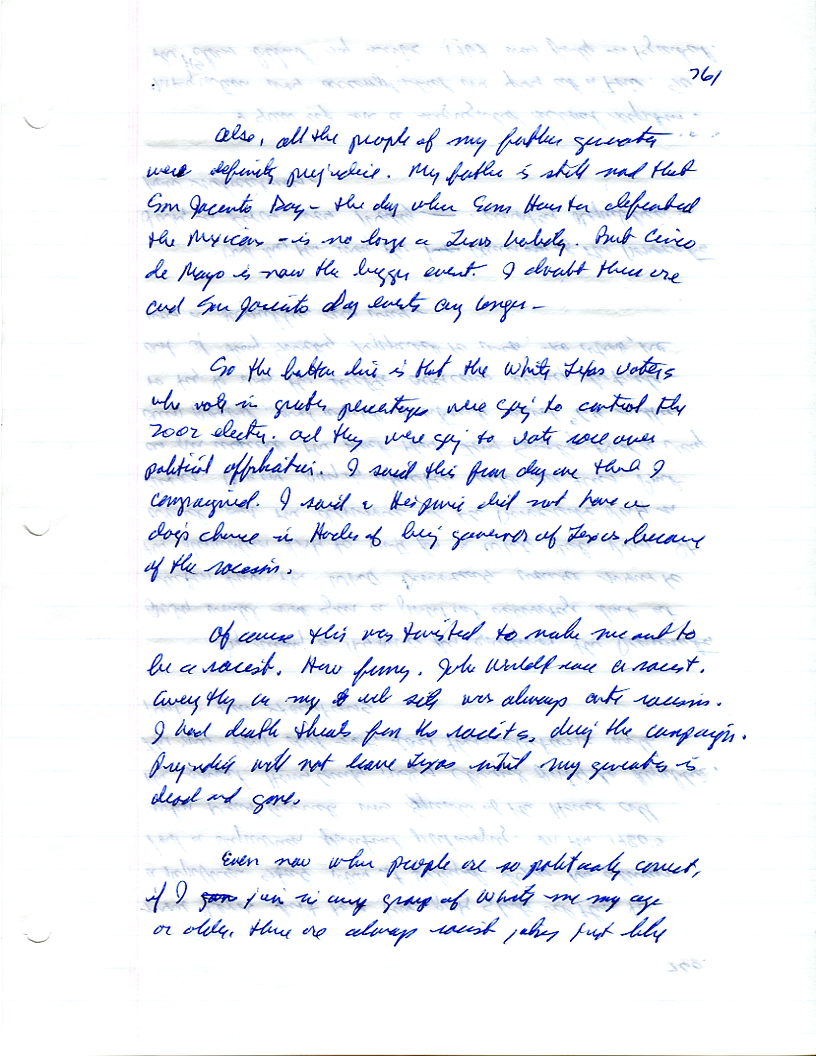 761
Also, all the people of my father generation
were definitely prejudice. My father is still mad that
San Jacento Day - the day when Sam Houston defeated
the Mexicans - is no longer a Texas holiday. But Cinco
de Mayo is now the bigger event. I doubt there are
and San Jacinto day events any longer -
So the bottom line is that the White Texas voters
who vote in greater percentages were going to control the
2002 election. and they were going to vote race over
political affiliation. I said this from day one that I
campaigned. I said a Hispanic did not have a
dog's chance in Hades of being governor of Texas because
of the racism.
Of course this was twisted to make me out to
be a racist. How funny. John a racist.
Everything on my web site was always anti racism.
I had death threats from the racists, during the campaign.
Prejudice will not leave Texas until my generation is
dead and gone.
Even now when people are so politically correct,
if I join in any group of White men my age
or older, there are always racist jokes just like